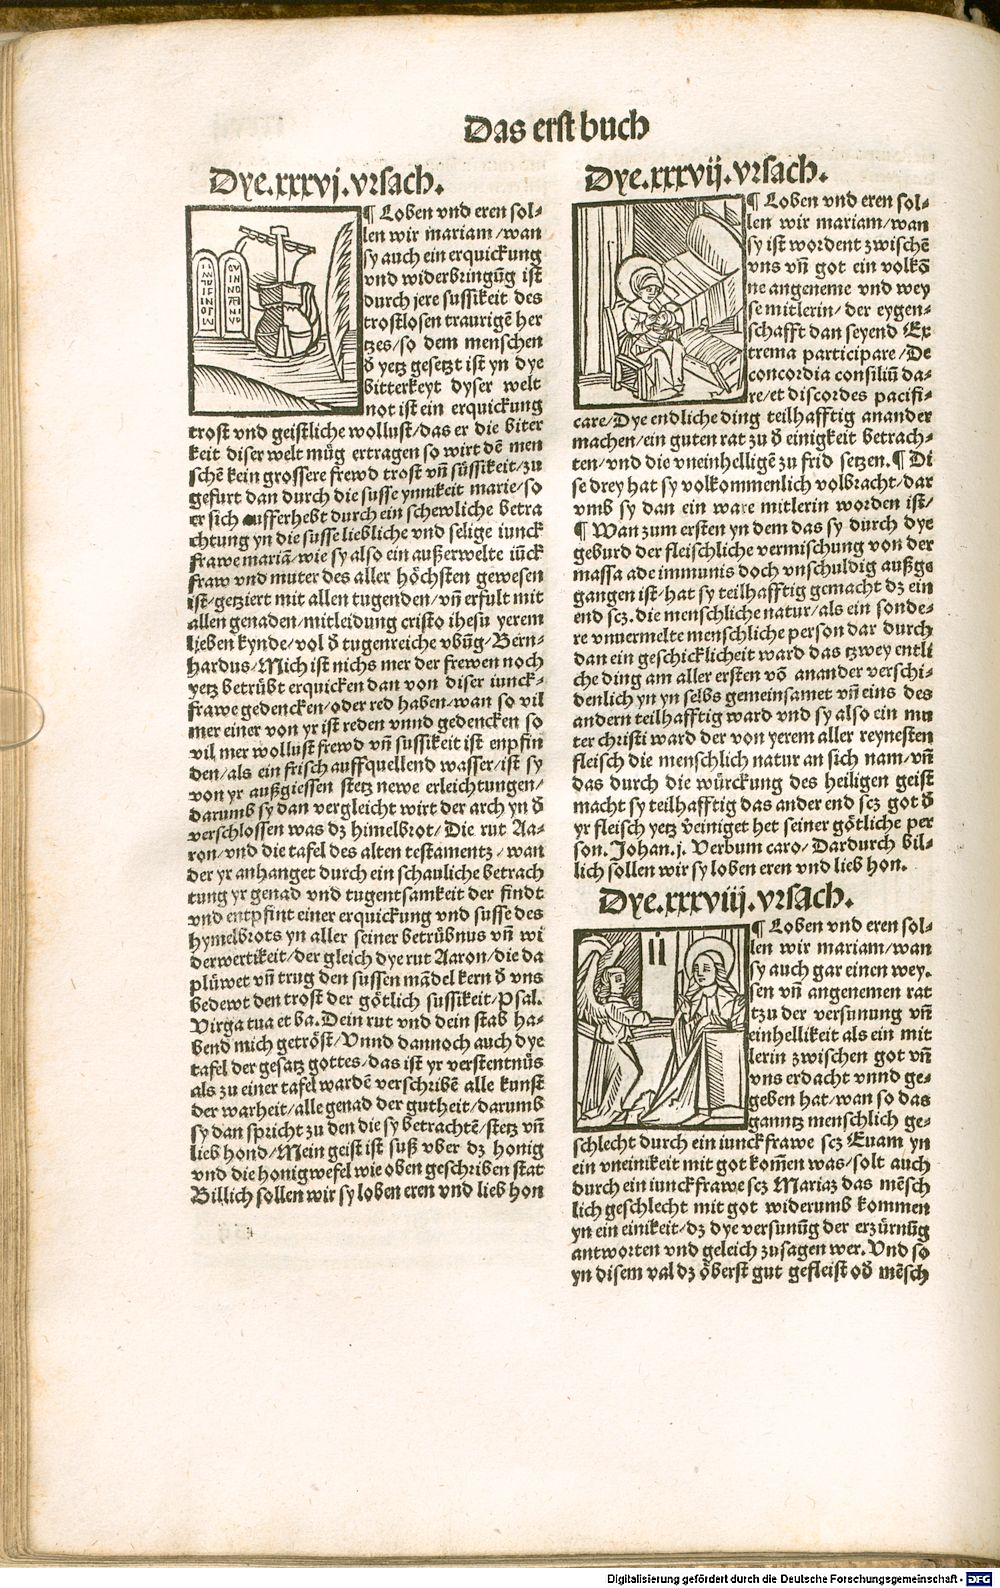 Das erst buch
Dye.xxxvj.vrsach.
¶ Loben vnd eren sol-
len wir mariam/wan
sy auch ein erquickung
vnd widerbringūg ist
durch jere sussikeit des
trostlosen traurigē her
tzes/so dem menschen
d̄ yetz gesetzt ist yn dye
bitterkeyt dyser welt
not ist ein erquickung
trost vnd geistliche wollust/das er die biter
keit diser welt müg ertragen so wirt dē men
schē kein grossere frewd trost vn̄ süssikeit/zu
gefurt dan durch die susse ynnikeit marie/so
er sich aufferhebt durch ein schewliche betra
chtung yn die susse liebliche vnd selige iunck
frawe mariā/wie sy also ein außerwelte iūck
fraw vnd muter des aller höchsten gewesen
ist/getziert mit allen tugenden/vn̄ erfult mit
allen genaden/mitleidung cristo ihesu yerem
lieben kynde/vol d̄ tugenreiche vbūg/Bern-
hardus/Mich ist nichs mer der frewen noch
yetz betrübt erquicken dan von diser iunck-
frawe gedencken/oder red haben/wan so vil
mer einer von yr ist reden vnnd gedencken so
vil mer wollust frewd vn̄ sussikeit ist enpfin
den/als ein frisch auffquellend wasser/ist sy
von yr außgiessen stetz newe erleichtungen/
darumb sy dan vergleicht wirt der arch yn d̄
verschlossen was dz himelbrot/Die rut Aa-
ron/vnd die tafel des alten testamentz/wan
der yr anhanget durch ein schauliche betrach
tung yr genad vnd tugentsamkeit der findt
vnd entpfint einer erquickung vnd susse des
hymelbrots yn aller seiner betrübnus vn̄ wi
derwertikeit/der gleich dye rut Aaron/die da
plüwet vn̄ trug den sussen mādel kern d̄ vns
bedewt den trost der götlich sussikeit/Psal.
Virga tua et ba. Dein rut vnd dein stab ha-
bend mich getröst/Vnnd dannoch auch dye
tafel der gesatz gottes/das ist yr verstentnüs
als zu einer tafel wardē verschribē alle kunst
der warheit/alle genad der gutheit/darumb
sy dan spricht zu den die sy betrachtē/stetz vn̄
lieb hond/Mein geist ist suß vber dz honig
vnd die honigwefel wie oben geschriben stat
Billich sollen wir sy loben eren vnd lieb hon
Dye.xxxvij.vrsach.
¶ Loben vnd eren sol-
len wir mariam/wan
sy ist wordent zwischē
vns vn̄ got ein volkō
ne angeneme vnd wey
se mitlerin/der eygen-
schafft dan seyend Ex
trema participare/De
concordia consiliū da-
re/et discordes pacifi-
care/Dye endliche ding teilhafftig anander
machen/ein guten rat zu d̄ einigkeit betrach-
ten/vnd die vneinhelligē zu frid setzen. ¶ Di
se drey hat sy volkommenlich volbracht/dar
vmb sy dan ein ware mitlerin worden ist/
¶ Wan zum ersten yn dem das sy durch dye
geburd der fleischliche vermischung von der
massa ade immunis doch vnschuldig außge
gangen ist/hat sy teilhafftig gemacht dz ein
end scz. die menschliche natur/als ein sonde-
re vnuermelte menschliche person dar durch
dan ein geschicklicheit ward das tzwey entli
che ding am aller ersten vō anander verschi-
denlich yn yn selbs gemeinsamet vn̄ eins des
andern teilhafftig ward vnd sy also ein mu
ter christi ward der von yerem aller reynesten
fleisch die menschlich natur an sich nam/vn̄
das durch die würckung des heiligen geist
macht sy teilhafftig das ander end scz got d̄
yr fleisch yetz v̄einiget het seiner götliche per
son. Johan. j. Verbum caro/Dardurch bil-
lich sollen wir sy loben eren vnd lieb hon.
Dye.xxxviij.vrsach.
¶ Loben vnd eren sol-
len wir mariam/wan
sy auch gar einen wey.
sen vn̄ angenemen rat
tzu der versunung vn̄
einhellikeit als ein mit
lerin zwischen got vn̄
vns erdacht vnnd ge-
geben hat/wan so das
ganntz menschlich ge-
schlecht durch ein iunckfrawe scz Euam yn
ein vneinikeit mit got kom̄en was/solt auch
durch ein iunckfrawe scz Mariaz das mēsch
lich geschlecht mit got widerumb kommen
yn ein einikeit/dz dye versunūg der erzürnūg
antworten vnd geleich zusagen wer. Vnd so
yn disem val dz öberst gut gefleist od̄ mēsch
Digitalisierung gefördert durch die Deutsche Forschungsgemeinschaft - DFG